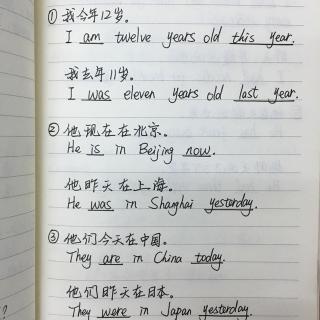 ① 我今年12岁。
I am twelve years old this year.
我去年11岁。
I was eleven years old last year.
② 他现在在北京。
He is in Beijing now.
他昨天在上海。
He was in Shanghai yesterday.
③ 他们今天在中国。
They are in China today.
他们昨天在日本。
They were in Japan yesterday.
?